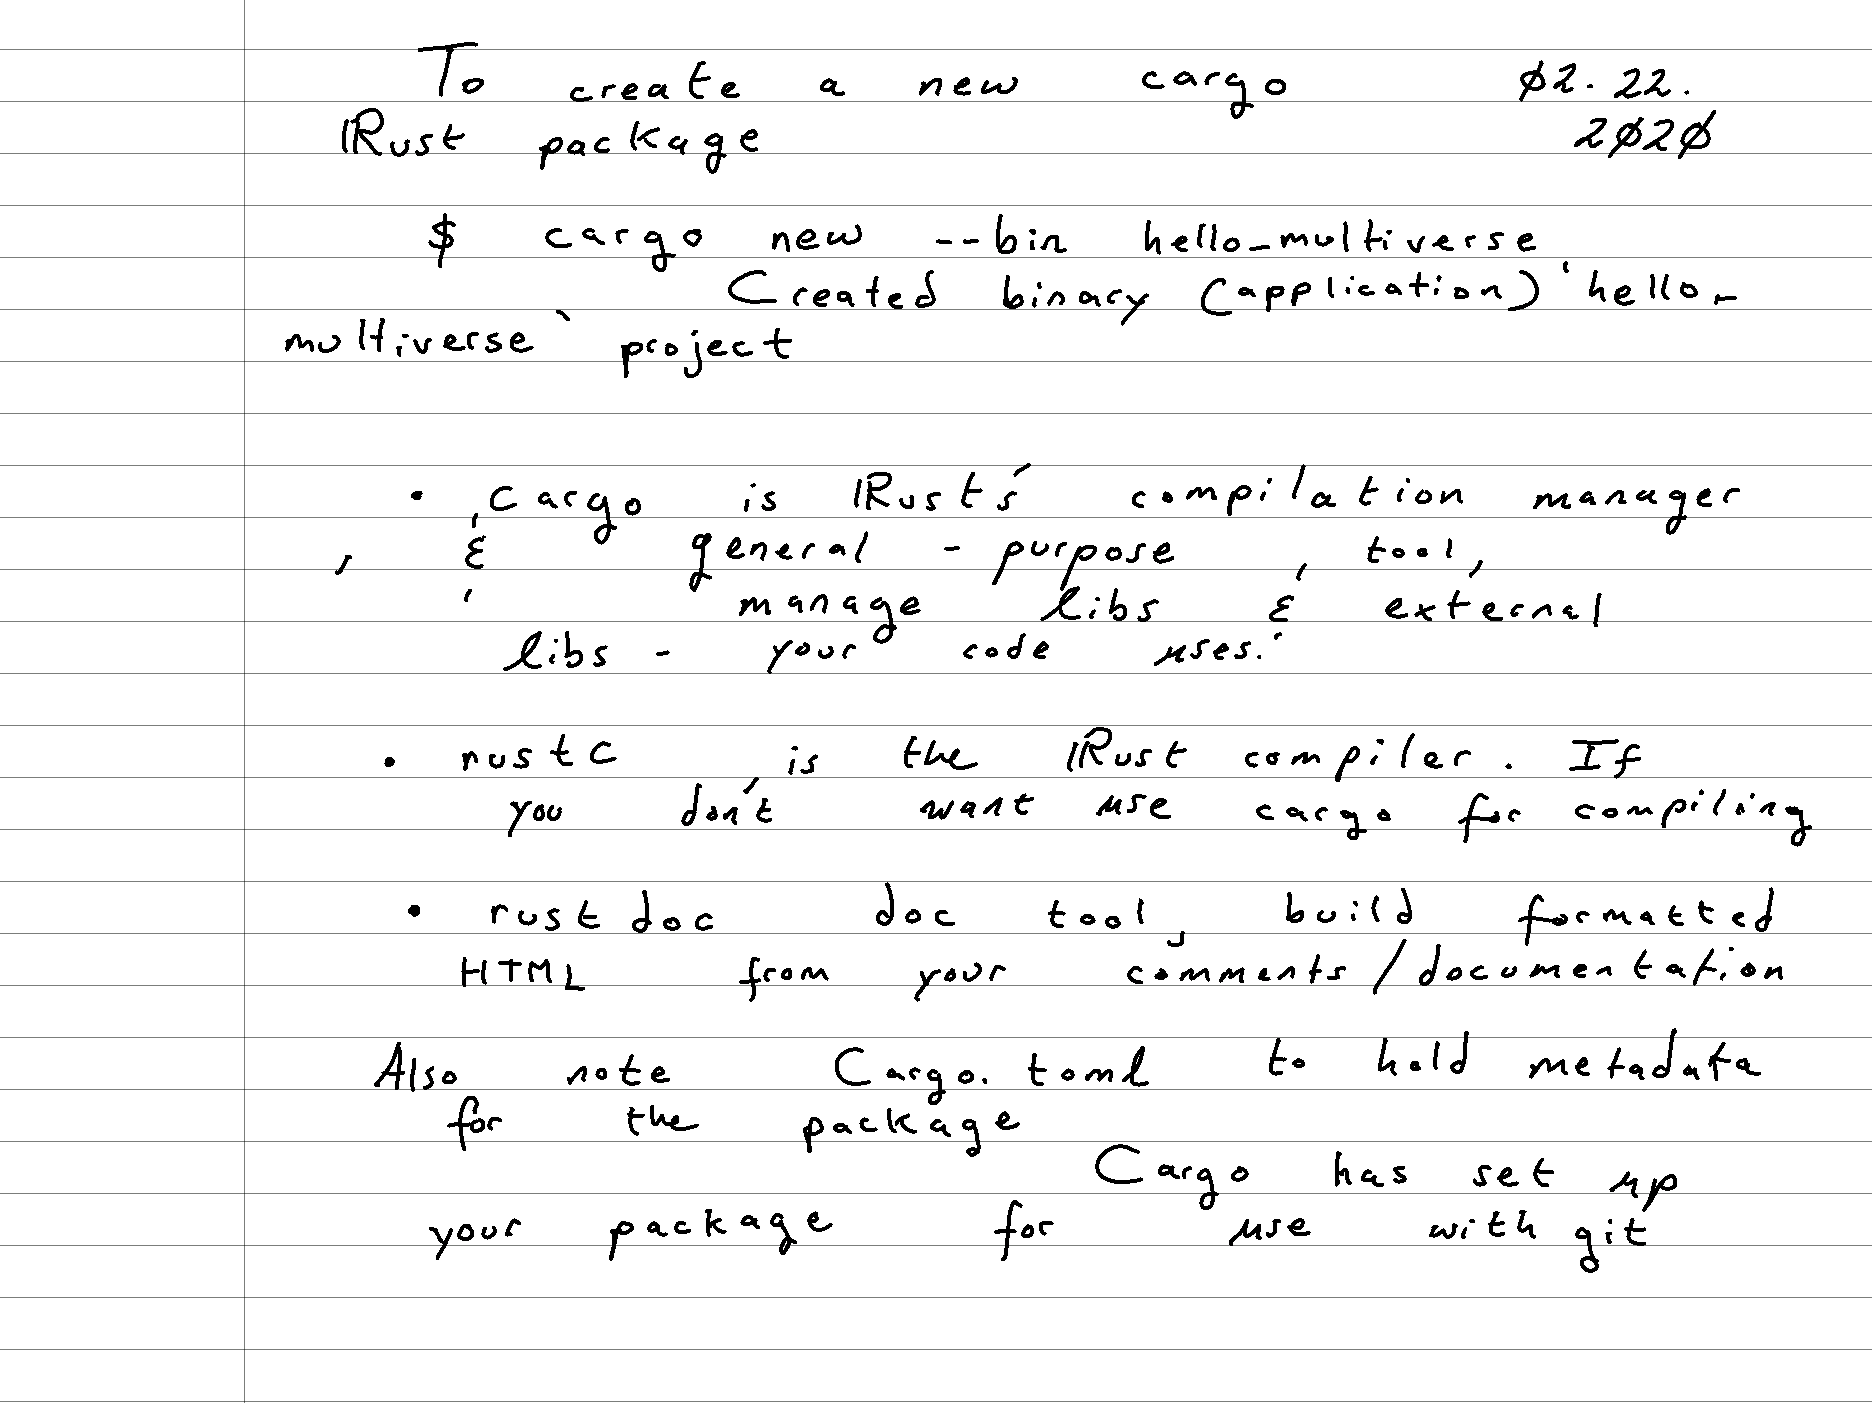 To create a new cargo 02.22.
Rust package 2020
$ cargo new --bin hello_multiverse
Created binary (application) `hello_
multiverse` project
• Cargo is Rust's compilation manager
, & general-purpose, tool,
manage libs & external
libs - your code uses.
• rustc is the Rust compiler. If
you don't want use cargo for compiling
• rustdoc doc tool, build formatted
HTML from your comments/documentation
Also note Cargo.toml to hold metadata
for the package
Cargo has set up
your package for use with git